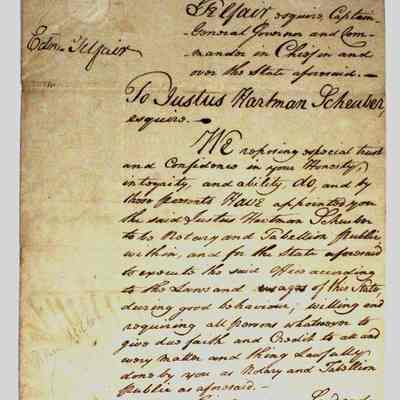 Telfair esquire, Captain
General Governor and Com-
mander in Chief in and
over the State aforesaid.
Edwd Telfair
To Justus Hartman Scheuber,
esquire.
WE reposing especial trust
and Confidence in your Honesty,
integrity, and ability, do, and by
these presents HAVE appointed you
the said Justus Hartman Scheuber
to be Notary and Tabellion Public
within, and for the State aforesaid
to execute the said Office according
to the Laws and usages of this State
during good behaviour; willing and
requiring all persons whatsoever to
give due faith and Credit to all and
every matter and thing Lawfully
done by you as Notary and Tabellion
Public as aforesaid.